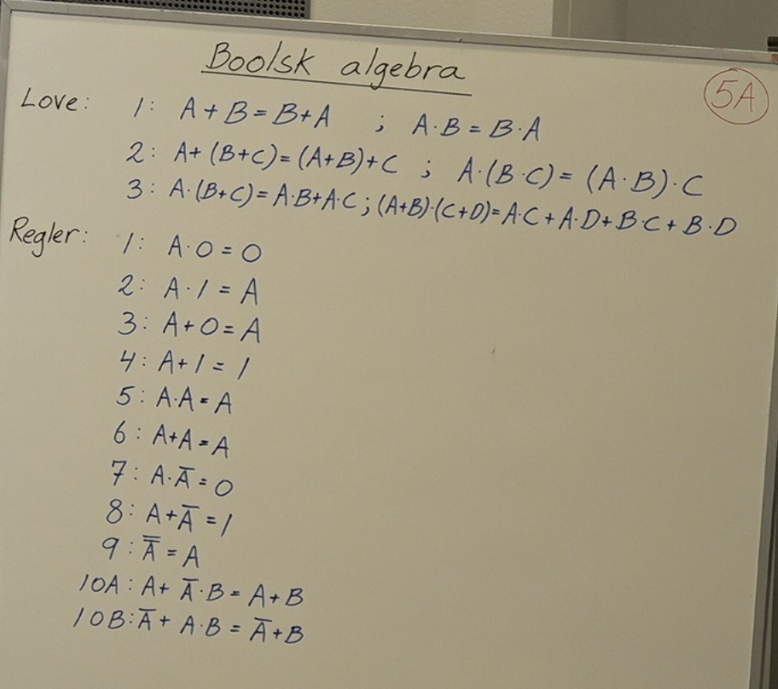 Boolsk algebra
5A
Love: 1: A + B = B + A ; A·B = B·A
2: A + (B+C) = (A+B) + C ; A·(B·C) = (A·B)·C
3: A·(B+C) = A·B + A·C ; (A+B)·(C+D) = A·C + A·D + B·C + B·D
Regler: 1: A·0 = 0
2: A·1 = A
3: A + 0 = A
4: A + 1 = 1
5: A·A = A
6: A + A = A
7: A·A̅ = 0
8: A + A̅ = 1
9: A̿ = A
10A: A + A̅·B = A + B
10B: A̅ + A·B = A̅ + B